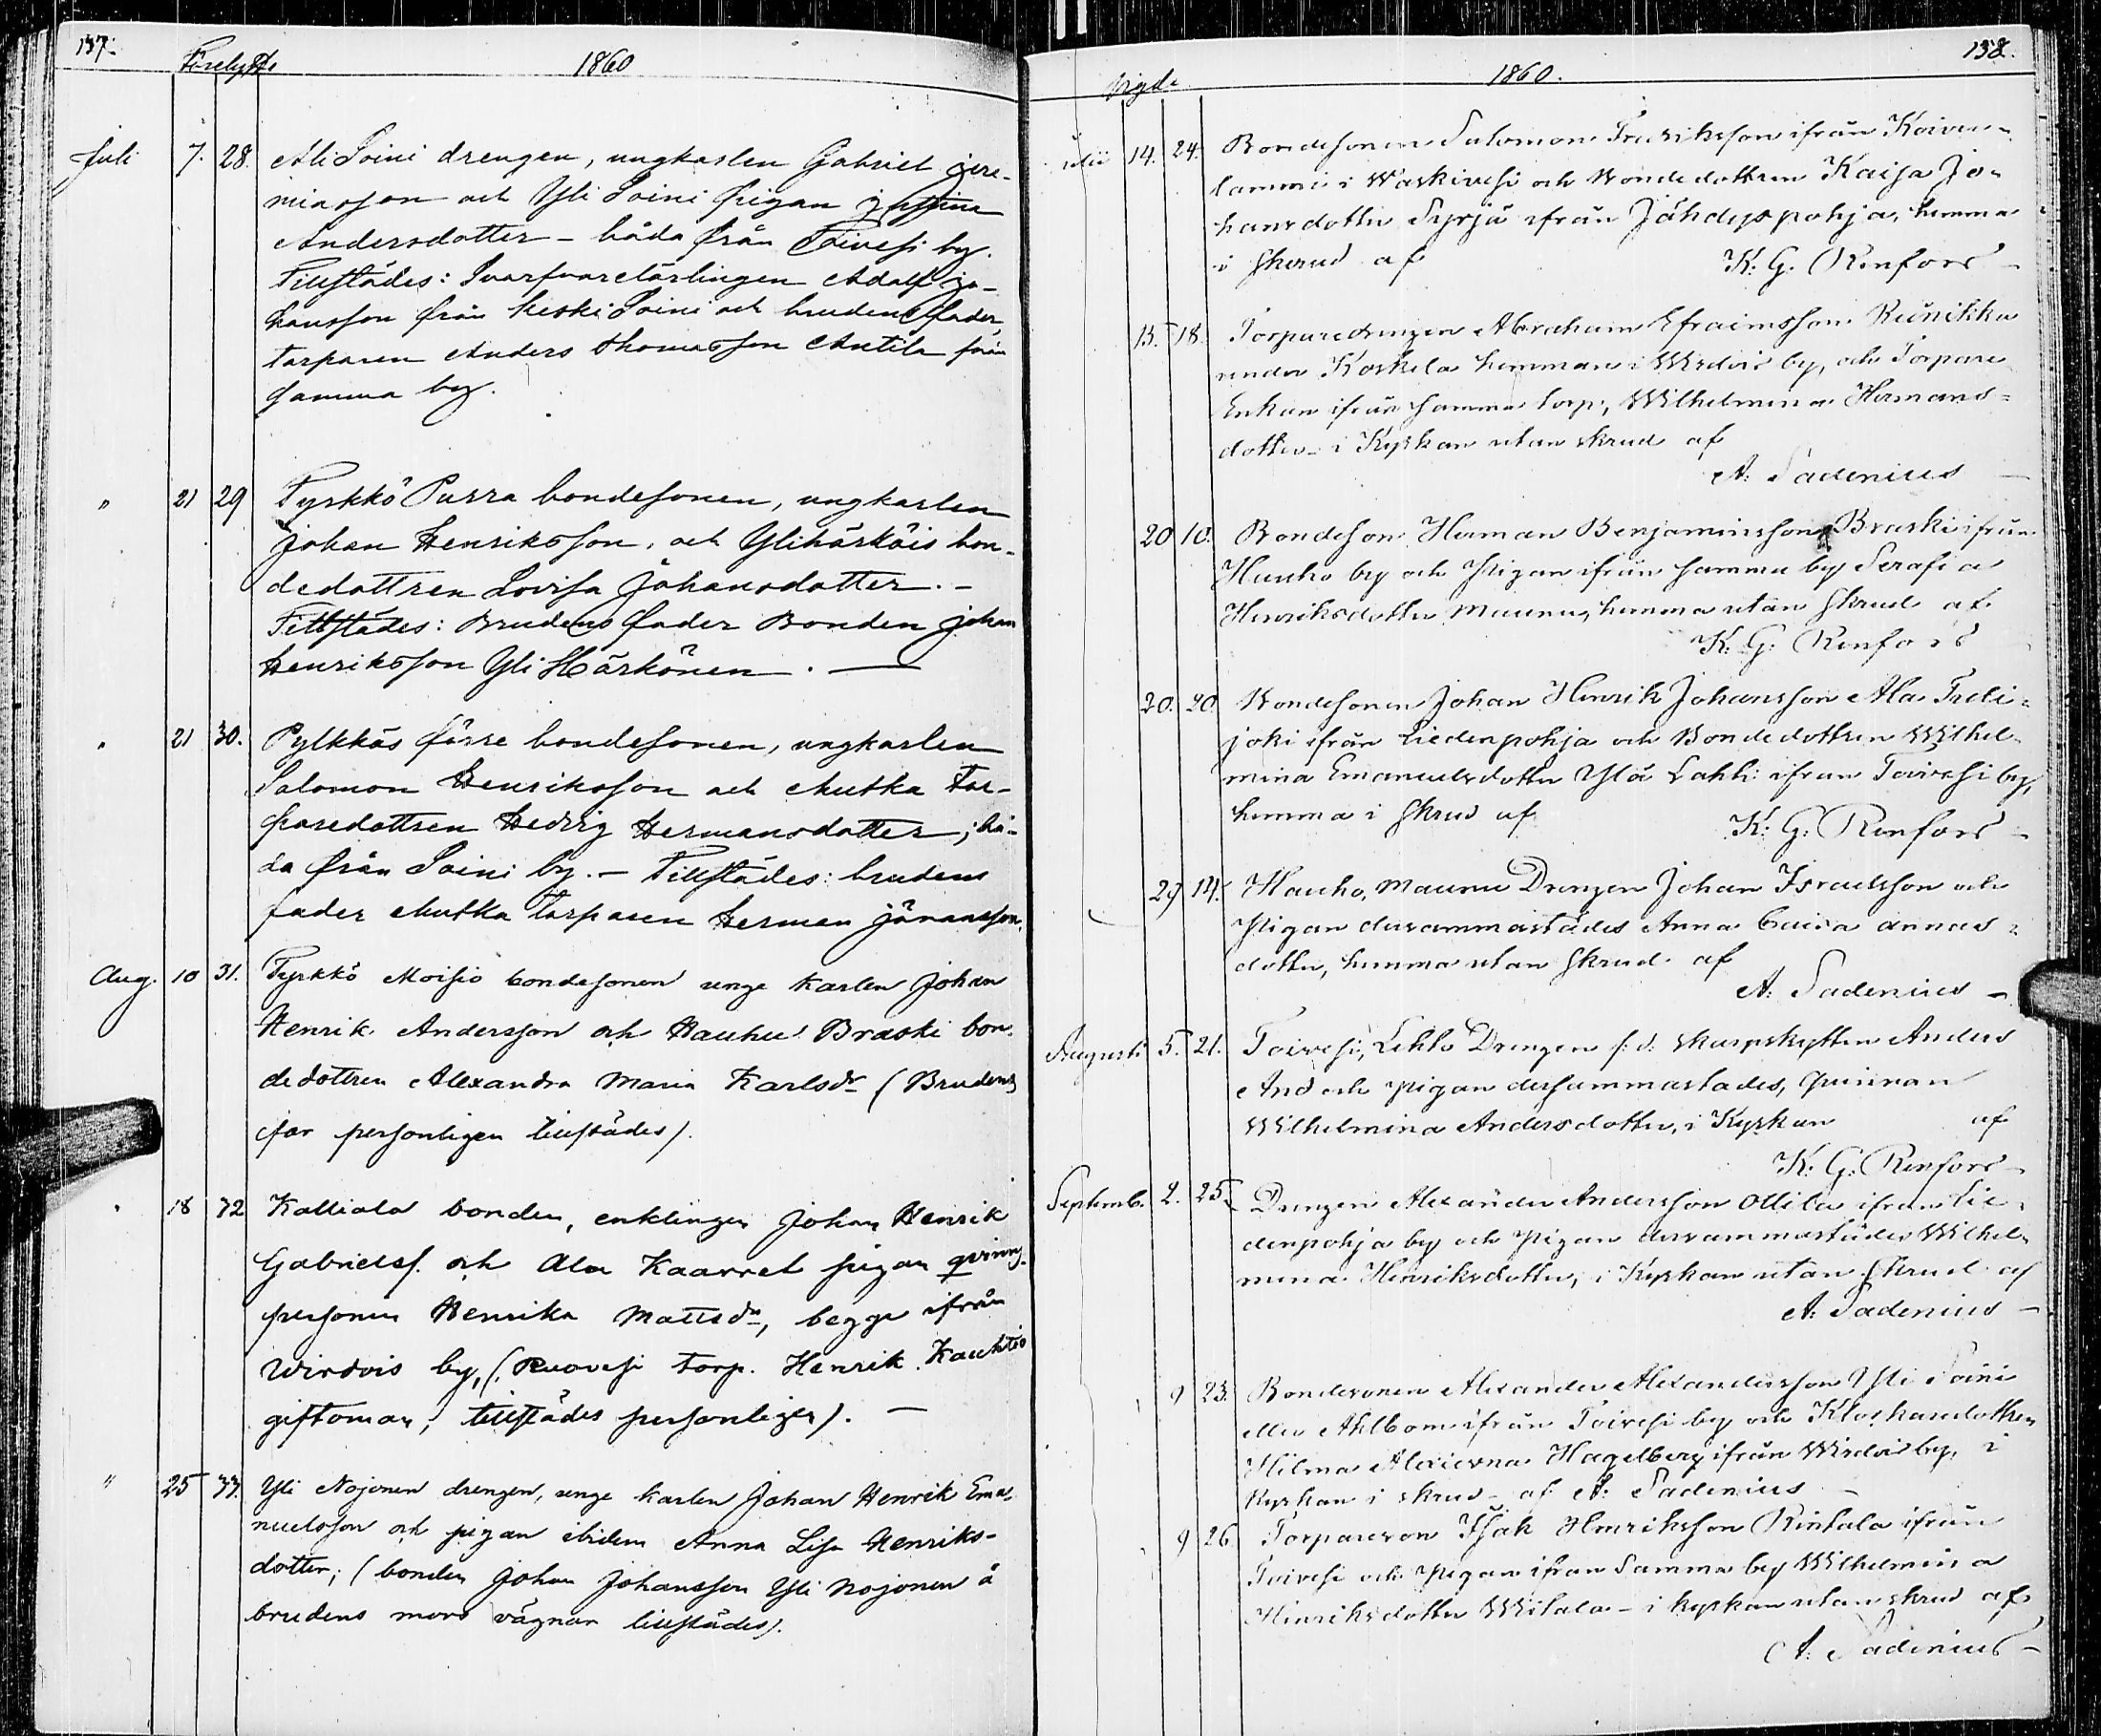 137.
Förelysta
1860
Juli 7. 28. Ali Soini drengen, ungkarlen Gabriel Jere-
miasson och Yli Soini pigan Justina
Andersdotter – båda från Toivesi by.
Tillstädes: Svarfvarelärlingen Adolf Jo-
hansson från Keski Soini och brudens fader,
torparen Anders Thomasson Antila från
samma by.
" 21 29 Tyrkkö Purra bondesonen, ungkarlen
Johan Henriksson, och Ylihärköis bon-
dedottren Lovisa Johansdotter. –
Tillstädes: Brudens fader Bonden Johan
Henriksson Yli Härkönen. —
" 21 30. Pylkkäs förre bondesonen, ungkarlen
Salomon Henriksson och Mutka Tor-
paredottren Hedvig Hermansdotter; bå-
da från Soini by. – Tillstädes: brudens
fader Mutka Torparen Herman Göransson.
Aug. 10 31. Tyrkkö Moisio bondesonen unge karlen Johan
Henrik Andersson och Hauhu Braski bon-
dedottren Alexandra Maria Karlsdr (Brudens
far personligen tillstädes).
" 18 32 Kalliala bonden, enklingen Johan Henrik
Gabrielss. och Ala Kaarret pigan qvinns-
personen Henrika Mattsdr, begge ifrån
Wirdois by, (Ruovesi Torp. Henrik Kauhtio
giftoman, tillstädes personligen). —
" 25 33. Yli Nojonen drengen, unge karlen Johan Henrik Ema-
nuelsson och pigan ibidem Anna Lisa Henriks-
dotter; (bonden Johan Johansson Yli Nojonen å
brudens mors vägnar tillstädes).
138.
Vigde
1860.
14. 24. Bondesonen Salomon Fredriksson ifrån Koiven-
lammi i Waskivesi och Bondedottren Kaisa Jo-
hansdotter Syrjä ifrån Jähdyspohja, hemma
i skrud af K. G. Renfors –
15. 18. Torparedrengen Abraham Efraimsson Reinikka
under Koskela hemman i Wirdois by, och Torpare
Enkan ifrån samma torp, Wilhelmina Hermans=
dotter – i Kyrkan utan skrud af
A. Sadenius —
20 10. Bondeson Herman Benjaminsson Braski ifrån
Hauho by och Pigan ifrån samma by Serafia
Henriksdotter Maunu, hemma utan skrud af
K. G. Renfors
20. 20. Bondesonen Johan Henrik Johansson Ala Treti=
joki ifrån Liedenpohja och Bondedottren Wilhel-
mina Emanuelsdotter Ylä Lahti ifrån Toivesi by,
hemma i skrud af K. G. Renfors –
29 14. Hauho, Maunu Drengen Johan Israelsson och
Pigan dersammastädes Anna Caisa Annas=
dotter, hemma utan skrud af
A. Sadenius –
Augusti 5. 21. Toivesi, Lehto Drengen f.d. skarpskytten Anders
And och Pigan dersammastades, Quinnan
Wilhelmina Andersdotter, i Kyrkan af
K. G. Renfors –
Septemb. 2. 25. Drengen Alexander Andersson Ollila ifrån Lie=
denpohja by och Pigan dersammastädes Wilhel-
mina Henriksdotter, i Kyrkan utan skrud af
A. Sadenius –
9 23. Bondesonen Alexander Alexandersson Yli Soini
eller Ahlbom ifrån Toivesi by och Klockaredottren
Hilma Alexievna Hagelberg ifrån Wirdois by, i
Kyrkan i skrud – af A. Sadenius –
9 26. Torpareson Isak Henriksson Rintala ifrån
Toivesi och Pigan ifrån samma by Wilhelmina
Henriksdotter Witala – i kyrkan utan skrud af
A. Sadenius –